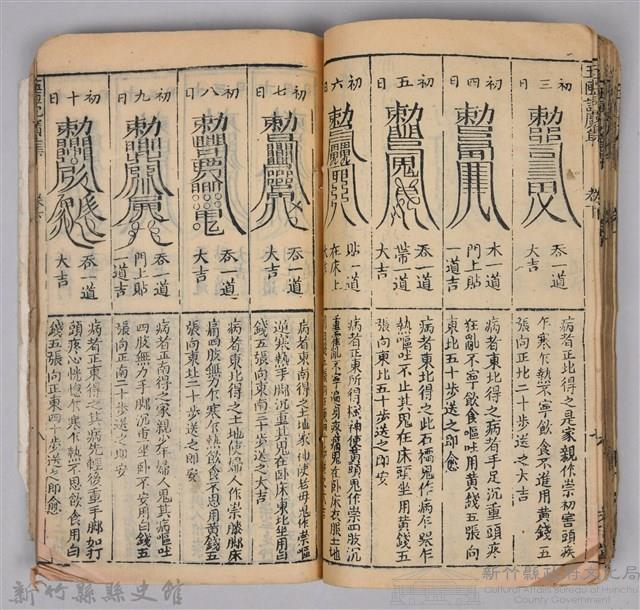 玉匣記廣集
初三日
吞一道
大吉
病者正北得之是家親作祟初害頭疾
乍寒乍熱不寧飲食不進用黃錢五
張向正北二十步送之大吉
初四日
木一道
門上貼
一道吉
病者東北得之病者手足沉重頭疼
狂亂不寧飲食嘔吐用黃錢五張向
東北五十步送之即愈
初五日
吞一道
帶一道
大吉
病者東北得之此石榴鬼作病乍寒乍
熱嘔吐不止其鬼在床頭坐用黃錢五
張向東北五十步送之即安
初六日
貼一道
在床上
病者正東所得樹神使黃頭鬼作祟四肢沉
初七日
吞一道
大吉
病者東南得之土地家神使老母鬼作祟嘔
逆寒熱手腳沉重其鬼在卧床東北坐用白
錢五張向東南二十步送之大吉
初八日
吞一道
大吉
病者東北得之土地使婦人作祟膝腳床
痛四肢無力乍寒乍熱飲食不思用黃錢五
張向東北二十步送之即安
初九日
吞一道
門上貼
一道吉
病者正南得之家親少年婦人鬼其病嘔吐
四肢無力手腳沉重坐卧不安用白錢五
張向正南二十步送之即安
初十日
吞一道
大吉
病者正東得之其病先輕後重手腳如打
頭疼心恍惚乍寒乍熱不思飲食用白
錢五張向正東四十步送之即愈
新竹縣縣史館
新竹縣政府文化局
Cultural Affairs Bureau of Hsinchu
County Government